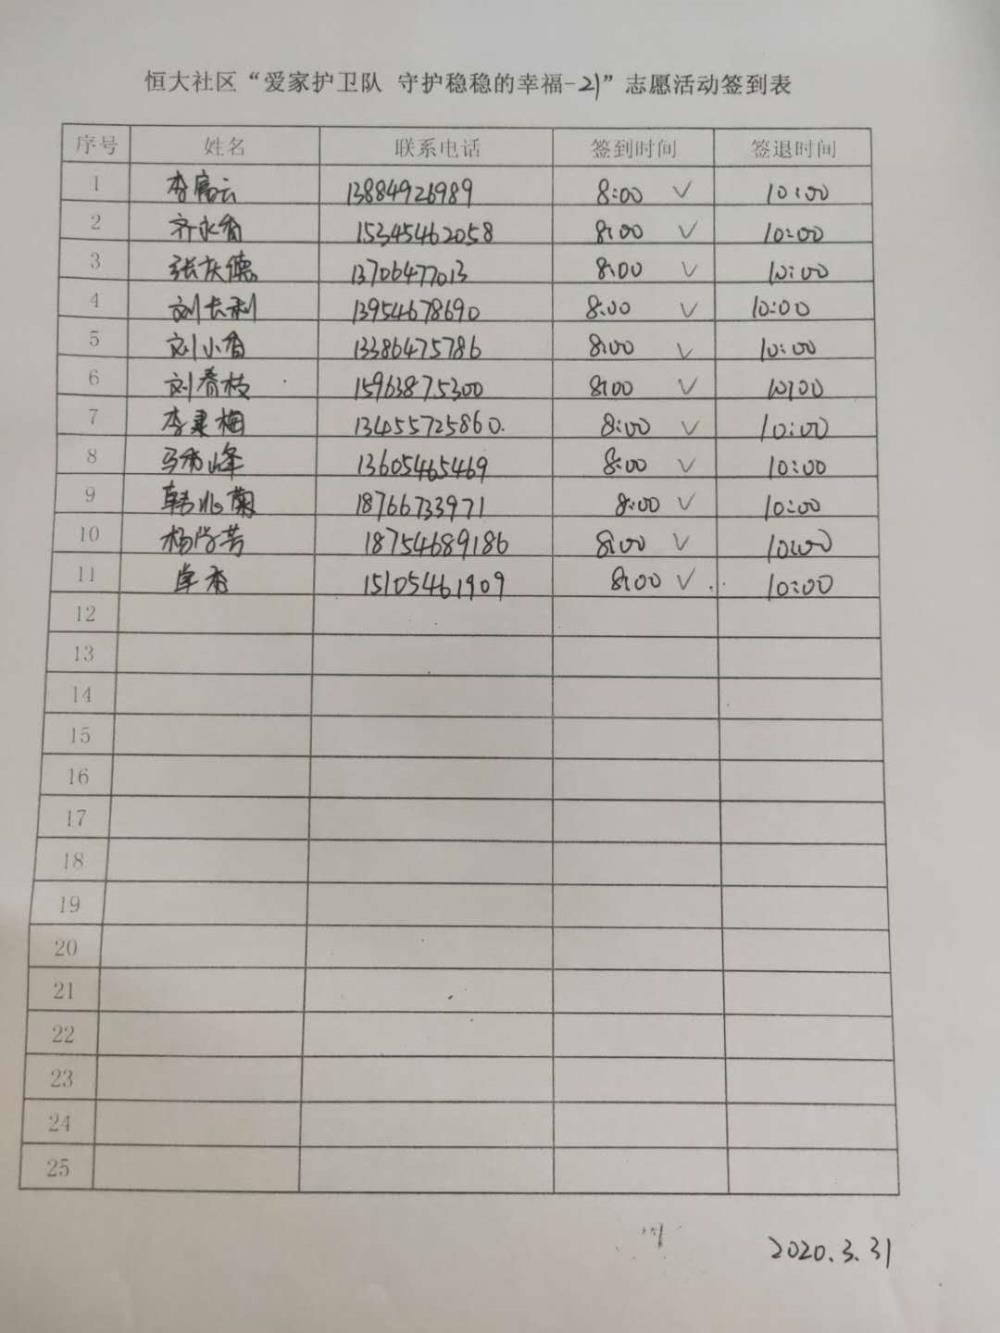 恒大社区“爱家护卫队 守护稳稳的幸福-21”志愿活动签到表
序号 姓名 联系电话 签到时间 签退时间
1 李富云 13884926989 8:00 ✓ 10:00
2 齐永香 15345462058 8:00 ✓ 10:00
3 张庆德 13706477013 8:00 ✓ 10:00
4 刘长利 13954678690 8:00 ✓ 10:00
5 刘小香 13386475786 8:00 ✓ 10:00
6 刘春枝 15963875300 8:00 ✓ 10:00
7 李建梅 13455725860. 8:00 ✓ 10:00
8 马秀峰 13605465469 8:00 ✓ 10:00
9 韩兆菊 18766733971 8:00 ✓ 10:00
10 杨学芳 18754689186 8:00 ✓ 10:00
11 15105461909 8:00 ✓ 10:00
12
13
14
15
16
17
18
19
20
21
22
23
24
25
2020.3.31